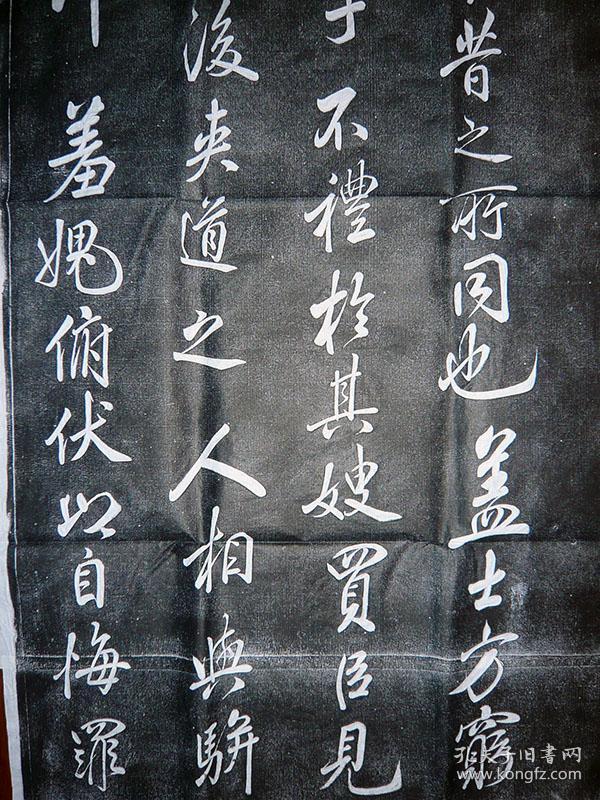 昔之所同也盖士方窮
不禮於其嫂買臣見
後夾道之人相與駢
羞媿俯伏以自悔罪
孔夫子旧書网
www.kongfz.com